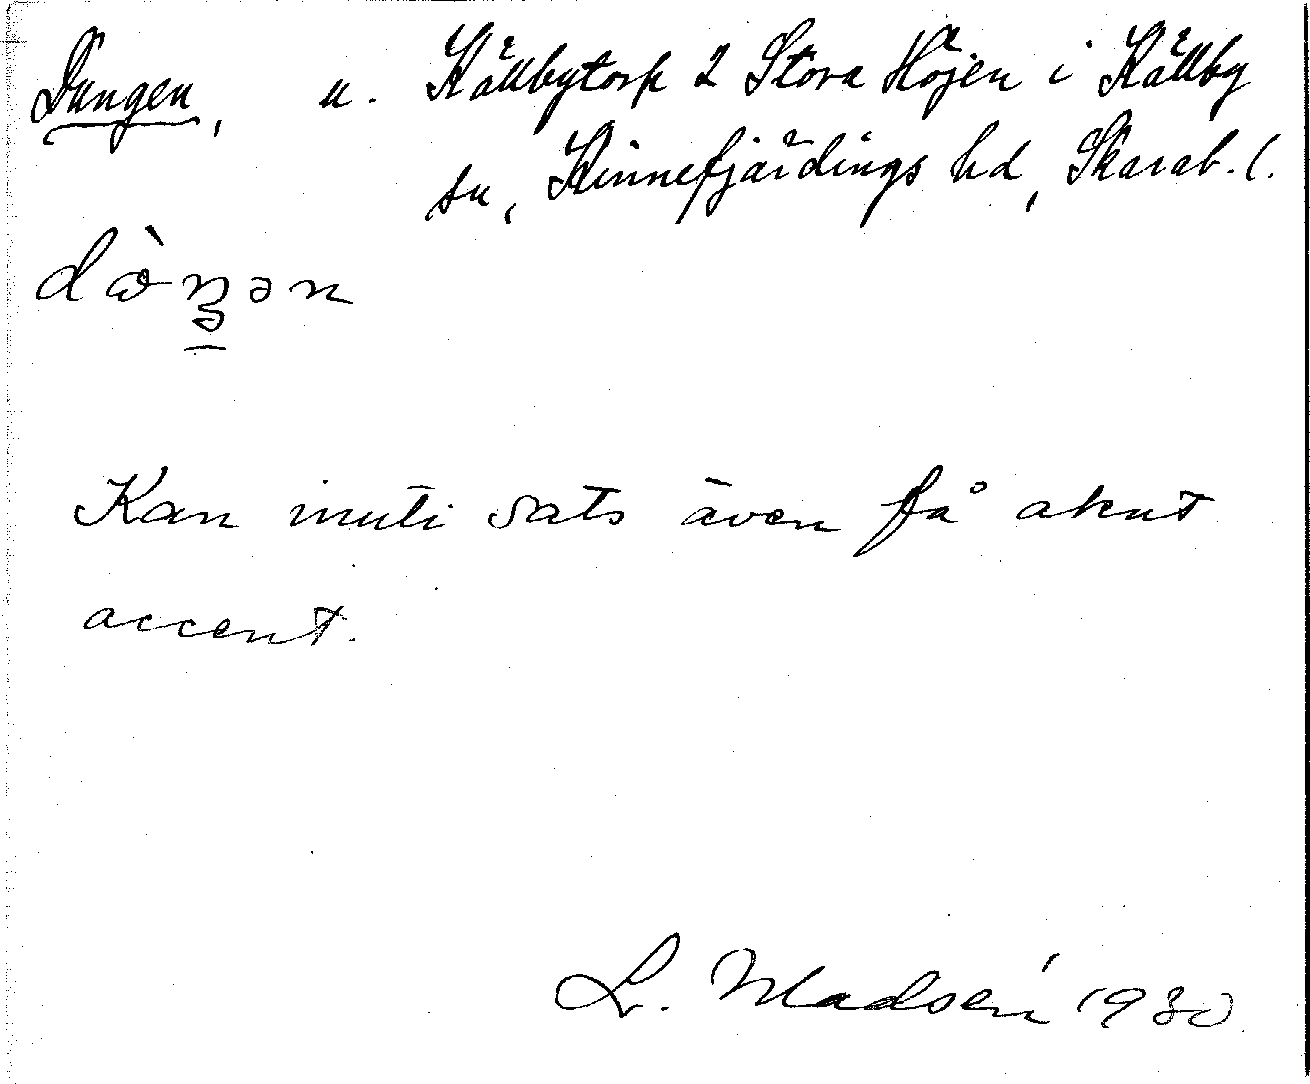 Dungen, u. Källbytorp 2 Stora Höjen i Källby
sn, Kinnefjärdings hd, Skarab. l.
Kan inuti sats även få akut
accent.
L. Madsén 1930